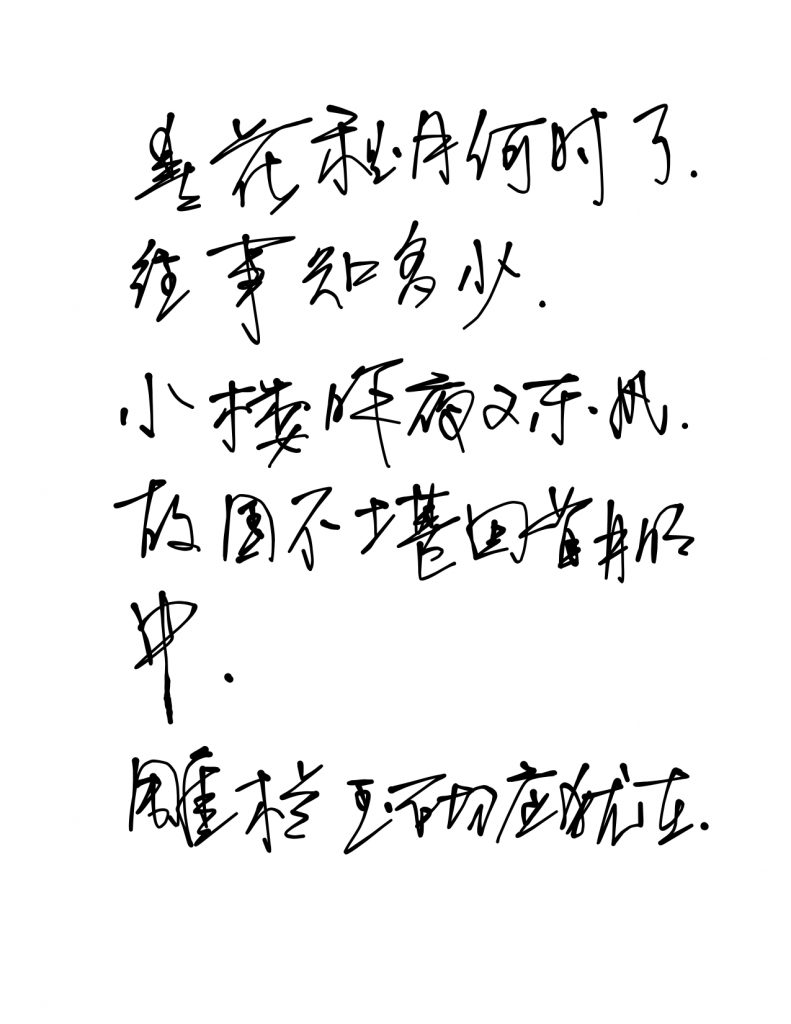 春花秋月何时了.
往事知多少.
小楼昨夜又东风.
故国不堪回首月明
中.
雕栏玉砌应犹在.